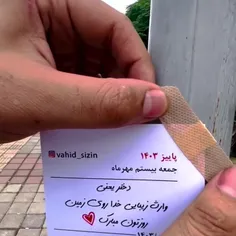 پاییز ۱۴۰۳
vahid_sizin
جمعه بیستم مهرماه
دختر یعنی
وارث زیبایی خدا روی زمین
روزتون مبارک